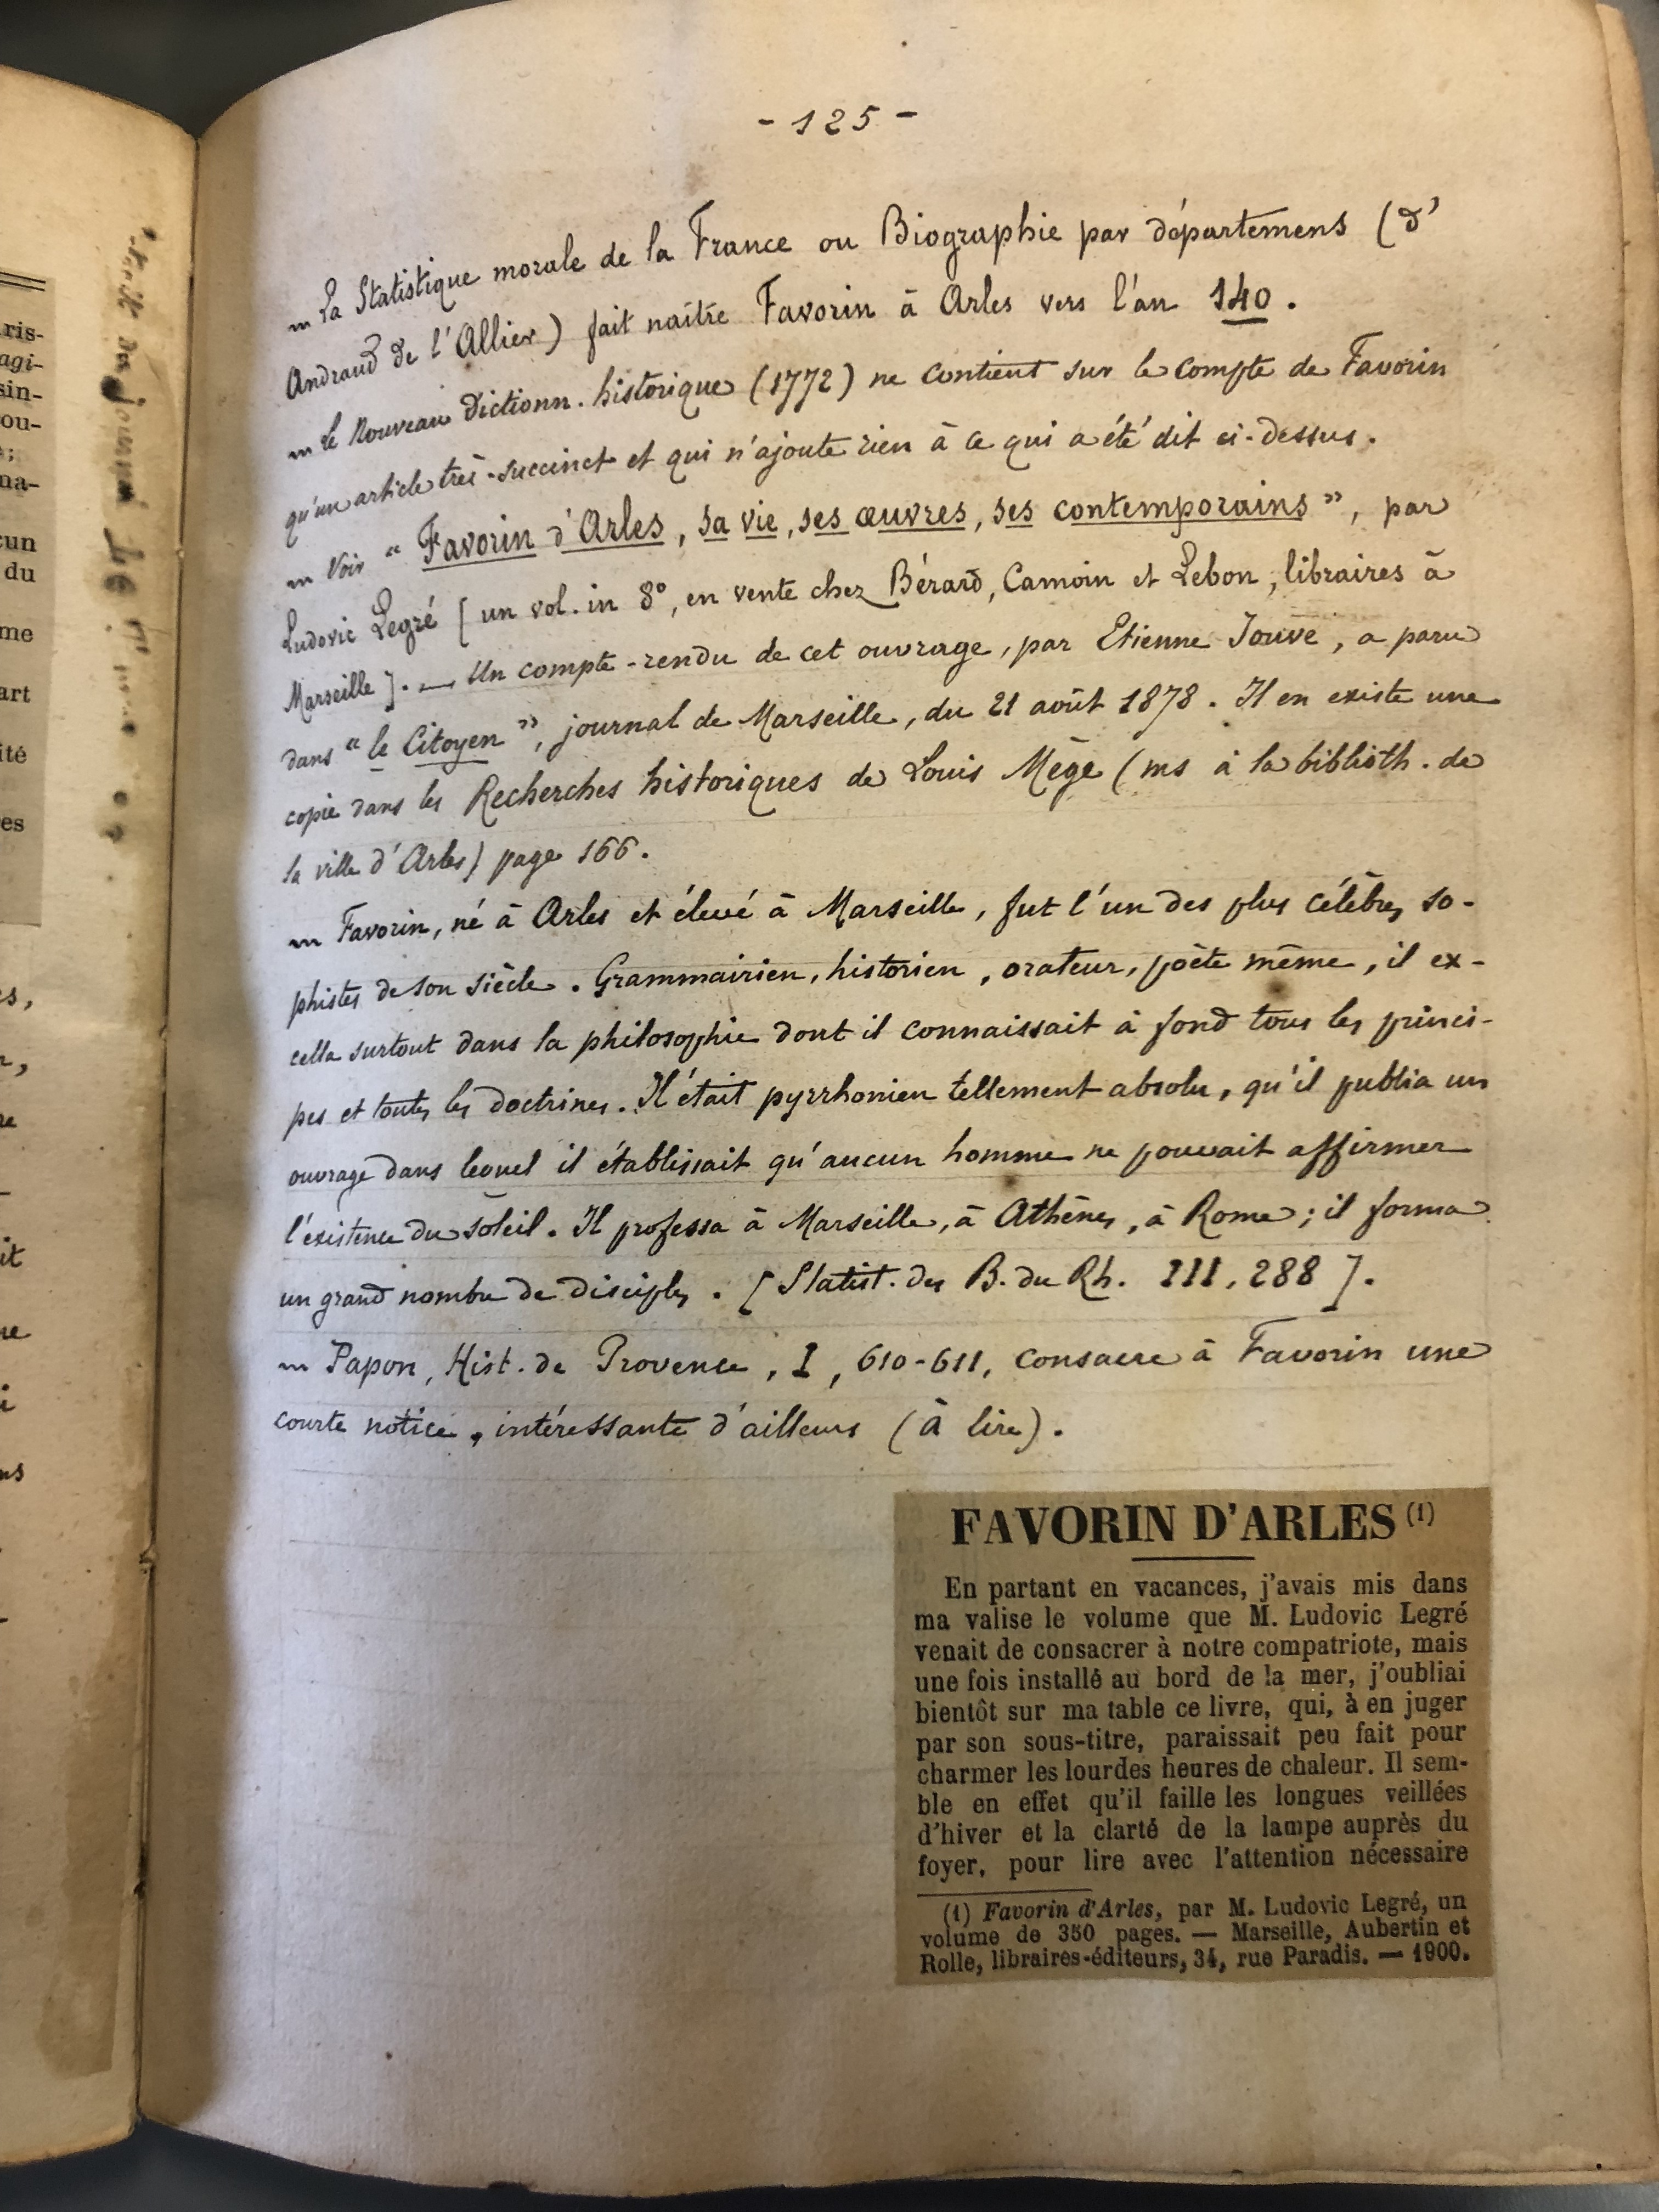 - 125 -
~ La Statistique morale de la France ou Biographie par départemens (d'
Andraud de l'Allier) fait naître Favorin à Arles vers l'an 140.
~ Le Nouveau Dictionn. historique (1772) ne contient sur le compte de Favorin
qu'un article très-succinct et qui n'ajoute rien à ce qui a été dit ci-dessus.
~ Voir " Favorin d'Arles, sa vie, ses œuvres, ses contemporains ", par
Ludovic Legré [ un vol. in 8°, en vente chez Bérard, Camoin et Lebon, libraires à
Marseille ]. — Un compte-rendu de cet ouvrage, par Etienne Jouve, a paru
dans " le Citoyen ", journal de Marseille, du 21 août 1878. Il en existe une
copie dans les Recherches historiques de Louis Mège (ms à la biblioth. de
la ville d'Arles) page 166.
~ Favorin, né à Arles et élevé à Marseille, fut l'un des plus célèbres so-
phistes de son siècle. Grammairien, historien, orateur, poète même, il ex-
cella surtout dans la philosophie dont il connaissait à fond tous les princi-
pes et toutes les doctrines. Il était pyrrhonien tellement absolu, qu'il publia un
ouvrage dans lequel il établissait qu'aucun homme ne pouvait affirmer
l'existence du soleil. Il professa à Marseille, à Athènes, à Rome ; il forma
un grand nombre de disciples. [ Statist. des B. du Rh. III, 288 ].
~ Papon, Hist. de Provence, I, 610-611, consacre à Favorin une
courte notice, intéressante d'ailleurs (à lire).
FAVORIN D'ARLES (1)
En partant en vacances, j'avais mis dans
ma valise le volume que M. Ludovic Legré
venait de consacrer à notre compatriote, mais
une fois installé au bord de la mer, j'oubliai
bientôt sur ma table ce livre, qui, à en juger
par son sous-titre, paraissait peu fait pour
charmer les lourdes heures de chaleur. Il sem-
ble en effet qu'il faille les longues veillées
d'hiver et la clarté de la lampe auprès du
foyer, pour lire avec l'attention nécessaire
(1) Favorin d'Arles, par M. Ludovic Legré, un
volume de 350 pages. — Marseille, Aubertin et
Rolle, libraires-éditeurs, 34, rue Paradis. — 1900.